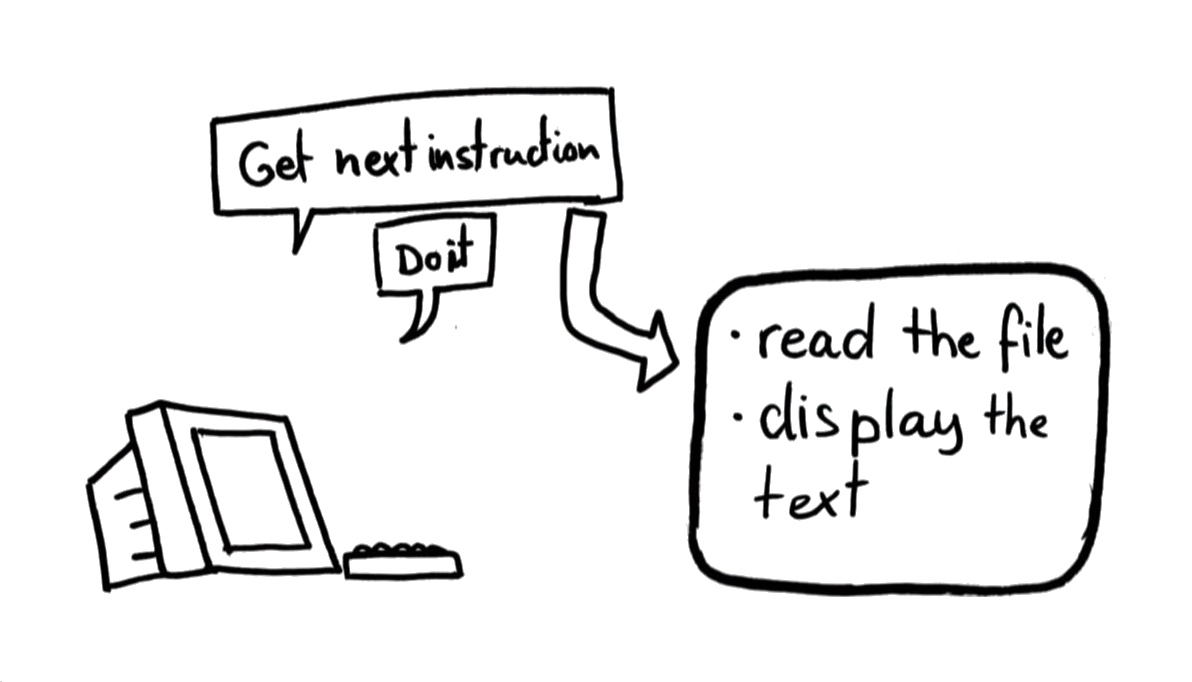 Get next instruction
Do it
· read the file
· display the
text